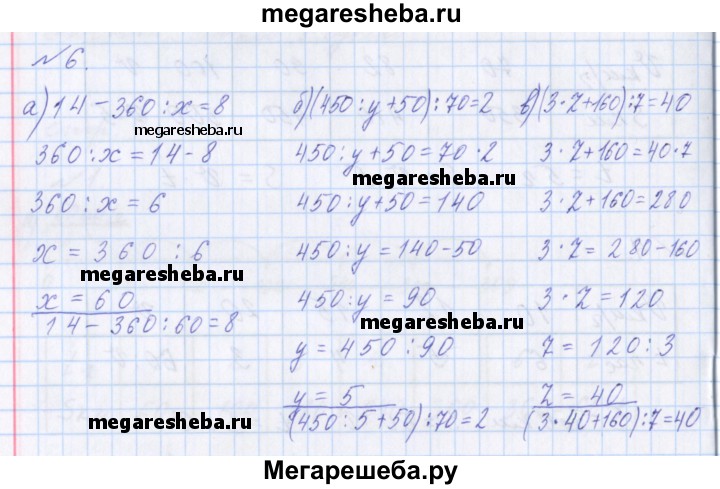 megaresheba.ru
№ 6.
а) 14 - 360 : x = 8
megaresheba.ru
360 : x = 14 - 8
360 : x = 6
x = 360 : 6
megaresheba.ru
x = 60
14 - 360 : 60 = 8
megaresheba.ru
б) (450 : y + 50) : 70 = 2
450 : y + 50 = 70 · 2
megaresheba.ru
450 : y + 50 = 140
450 : y = 140 - 50
450 : y = 90
megaresheba.ru
y = 450 : 90
y = 5
(450 : 5 + 50) : 70 = 2
в) (3 · z + 160) : 7 = 40
3 · z + 160 = 40 · 7
3 · z + 160 = 280
3 · z = 280 - 160
3 · z = 120
z = 120 : 3
z = 40
(3 · 40 + 160) : 7 = 40
Мегарешеба.ру